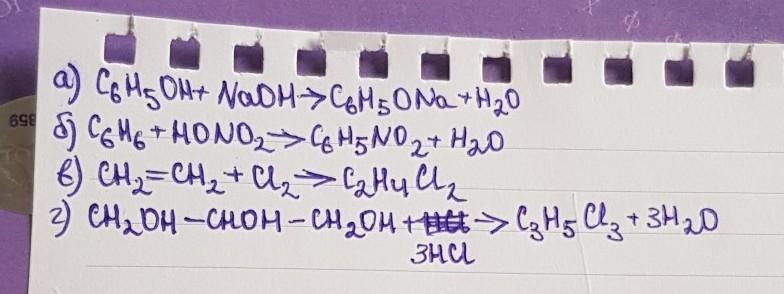 а) C₆H₅OH + NaOH → C₆H₅ONa + H₂O
б) C₆H₆ + HONO₂ → C₆H₅NO₂ + H₂O
в) CH₂=CH₂ + Cl₂ → C₂H₄Cl₂
г) CH₂OH – CHOH – CH₂OH + → C₃H₅Cl₃ + 3H₂O
3HCl
859